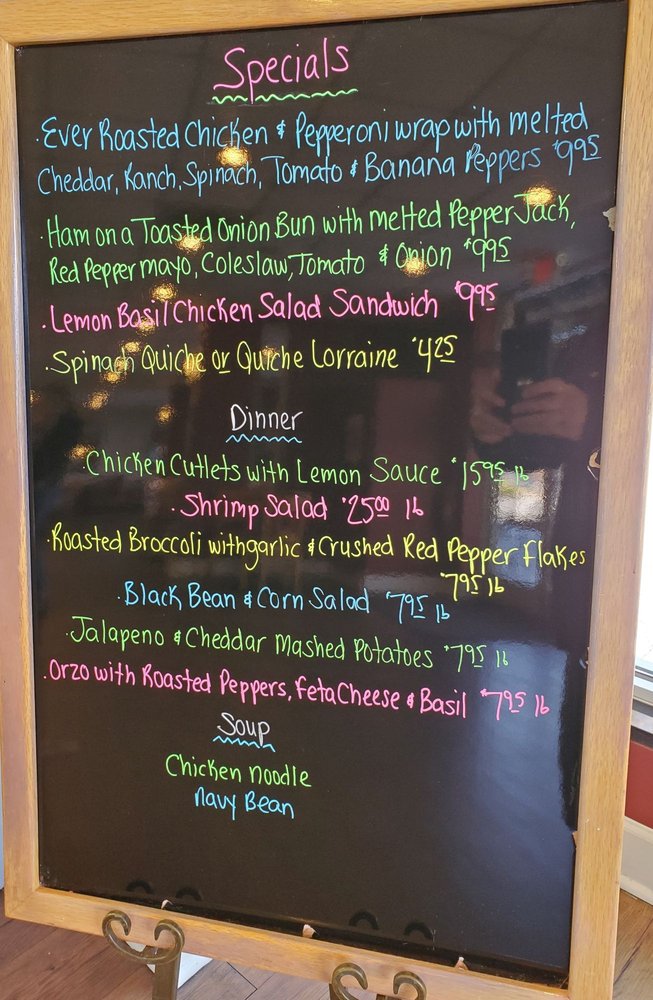 Specials
· Ever Roasted Chicken & Pepperoni wrap with melted
Cheddar, Ranch, Spinach, Tomato & Banana Peppers $9.95
· Ham on a Toasted Onion Bun with melted Pepper Jack,
Red Pepper mayo, Coleslaw, Tomato & Onion $9.95
· Lemon Basil Chicken Salad Sandwich $9.95
· Spinach Quiche or Quiche Lorraine $4.25
Dinner
· Chicken Cutlets with Lemon Sauce $15.95 lb
· Shrimp Salad $25.00 lb
· Roasted Broccoli with garlic & Crushed Red Pepper flakes
$7.95 lb
· Black Bean & Corn Salad $7.95 lb
· Jalapeno & Cheddar Mashed Potatoes $7.95 lb
· Orzo with Roasted Peppers, feta Cheese & Basil $7.95 lb
Soup
Chicken noodle
navy Bean